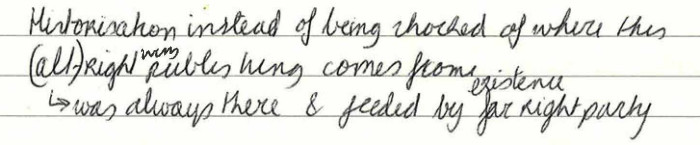 Historisation instead of being shocked of where this
(alt-)Right wing publishing comes from
↳ was always there & feeded by existence far right party